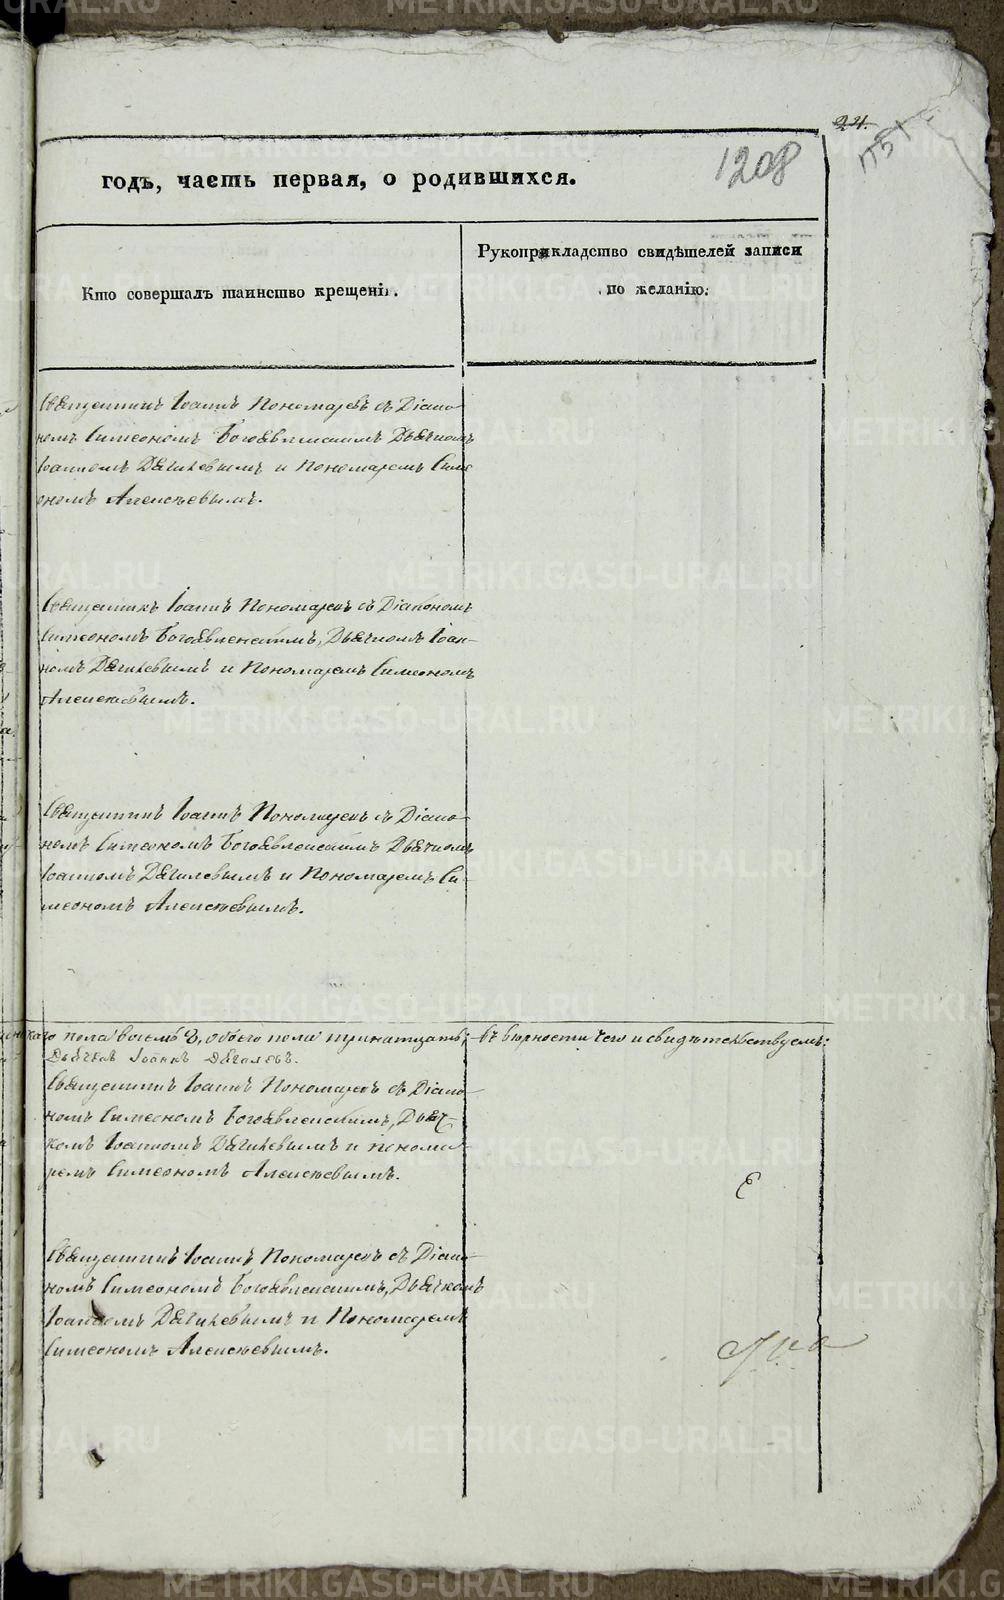 24.
1208
1151
годъ, часть первая, о родившихся.
Кто совершалъ таинство крещенія.
Рукоприкладство свидѣтелей записи
по желанію.
Священникъ Іоаннъ Пономаревъ съ Діако-
номъ Симеономъ Богоявленскимъ Дьячкомъ
Іоанномъ Дягилевымъ и Пономаремъ Симе
ономъ Алексѣевымъ.
Священникъ Іоаннъ Пономаревъ съ Діакономъ
Симеономъ Богоявленскимъ, Дьячкомъ Іоан-
номъ Дягилевымъ и Пономаремъ Симеономъ
Алексѣевымъ.
Священникъ Іоаннъ Пономаревъ съ Діако-
номъ Симеономъ Богоявленскимъ Дьячкомъ
Іоанномъ Дягилевымъ и Пономаремъ Си-
меономъ Алексѣевымъ.
пола восемь 8, обоего пола тринатцать; въ вѣрности чего и свидѣтельствуемъ:
Дьячекъ Іоаннъ Дягилевъ.
Священникъ Іоаннъ Пономаревъ съ Діако-
номъ Симеономъ Богоявленскимъ, Дьяч-
комъ Іоанномъ Дягилевымъ и понома-
ремъ Симеономъ Алексѣевымъ.
Священникъ Іоаннъ Пономаревъ съ Діако-
номъ Симеономъ Богоявленскимъ, Дьячкомъ
Іоанномъ Дягилевымъ и Пономаремъ
Симеономъ Алексѣевымъ.
METRIKI.GASO-URAL.RU